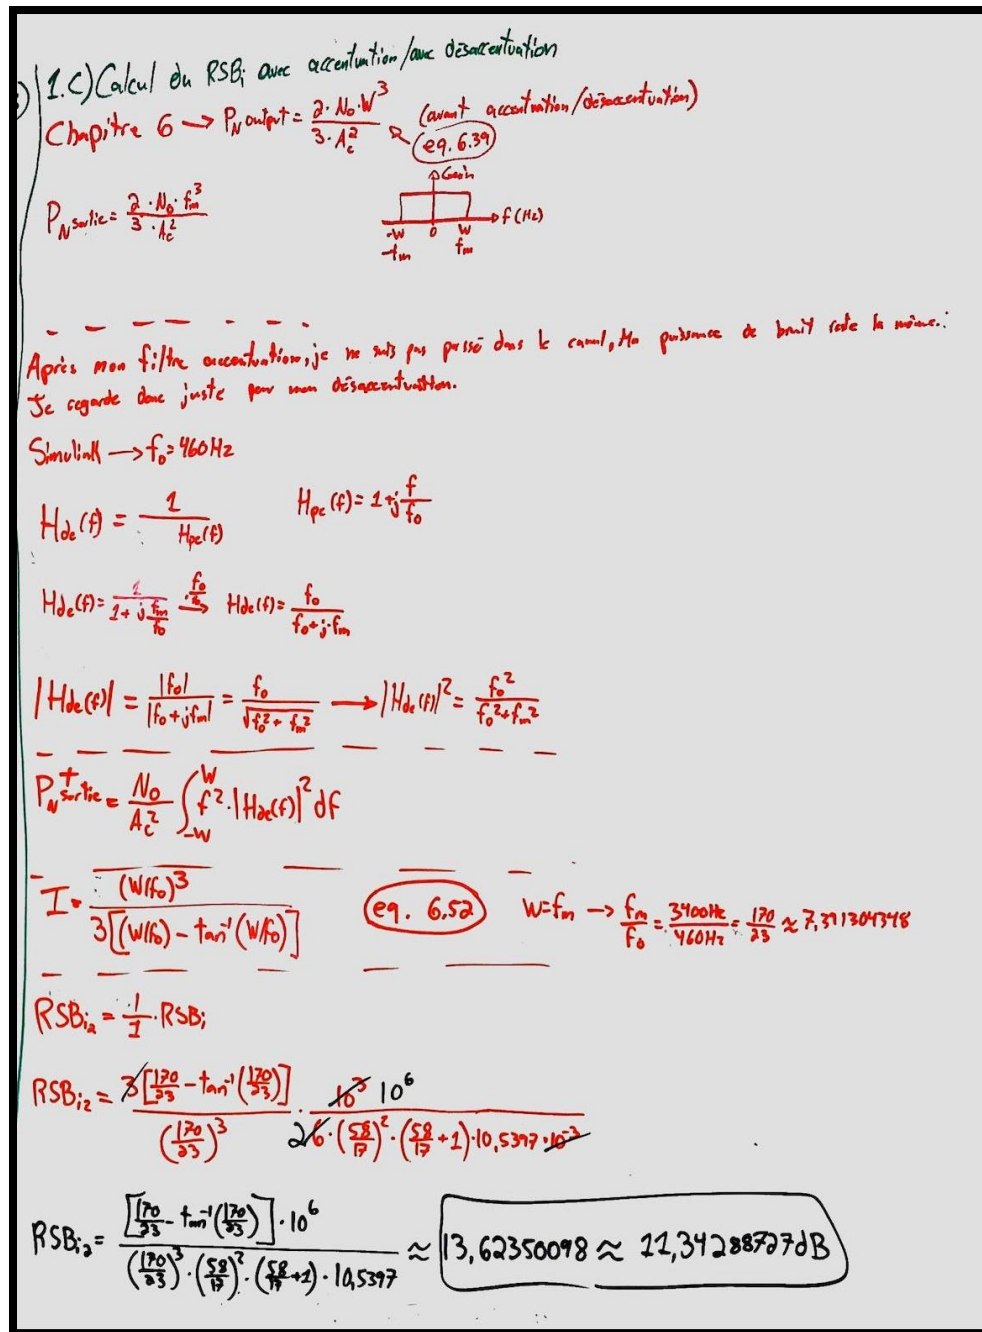 1.C) Calcul du RSBi avec accentuation/avec désaccentuation
Chapitre 6 → PN output = 2·N0·W^3 / 3·Ac^2 (avant accentuation/désaccentuation)
eq. 6.39
Gain
PN sortie = 2·N0·fm^3 / 3·Ac^2
f(Hz)
-W 0 W
-fm fm
Après mon filtre accentuation, je ne suis pas passé dans le canal, Ma puissance de bruit reste la même.:
Je regarde donc juste pour mon désaccentuation.
Simulink → f0 = 460Hz
Hde(f) = 1 / Hpe(f) Hpe(f) = 1+j f/f0
Hde(f) = 1 / (1+j fm/f0) ·f0/f0 → Hde(f) = f0 / (f0+j·fm)
|Hde(f)| = |f0| / |f0+jfm| = f0 / √(f0^2+fm^2) → |Hde(f)|^2 = f0^2 / (f0^2+fm^2)
PN sortie^+ = N0/Ac^2 ∫_-W^W f^2·|Hde(f)|^2 df
I = (W/f0)^3 / 3[(W/f0) - tan^-1(W/f0)] eq. 6.52 W=fm → fm/f0 = 3400Hz/460Hz = 170/23 ≈ 7,391304348
RSBi2 = 1/I · RSBi
RSBi2 = 3[170/23 - tan^-1(170/23)] / (170/23)^3 · 10^3 10^6 / 2 6·(58/17)^2·(58/17+1)·10,5397·10^-3
RSBi2 = [170/23 - tan^-1(170/23)]·10^6 / (170/23)^3·(58/17)^2·(58/17+1)·10,5397 ≈ 13,62350098 ≈ 11,34288727dB